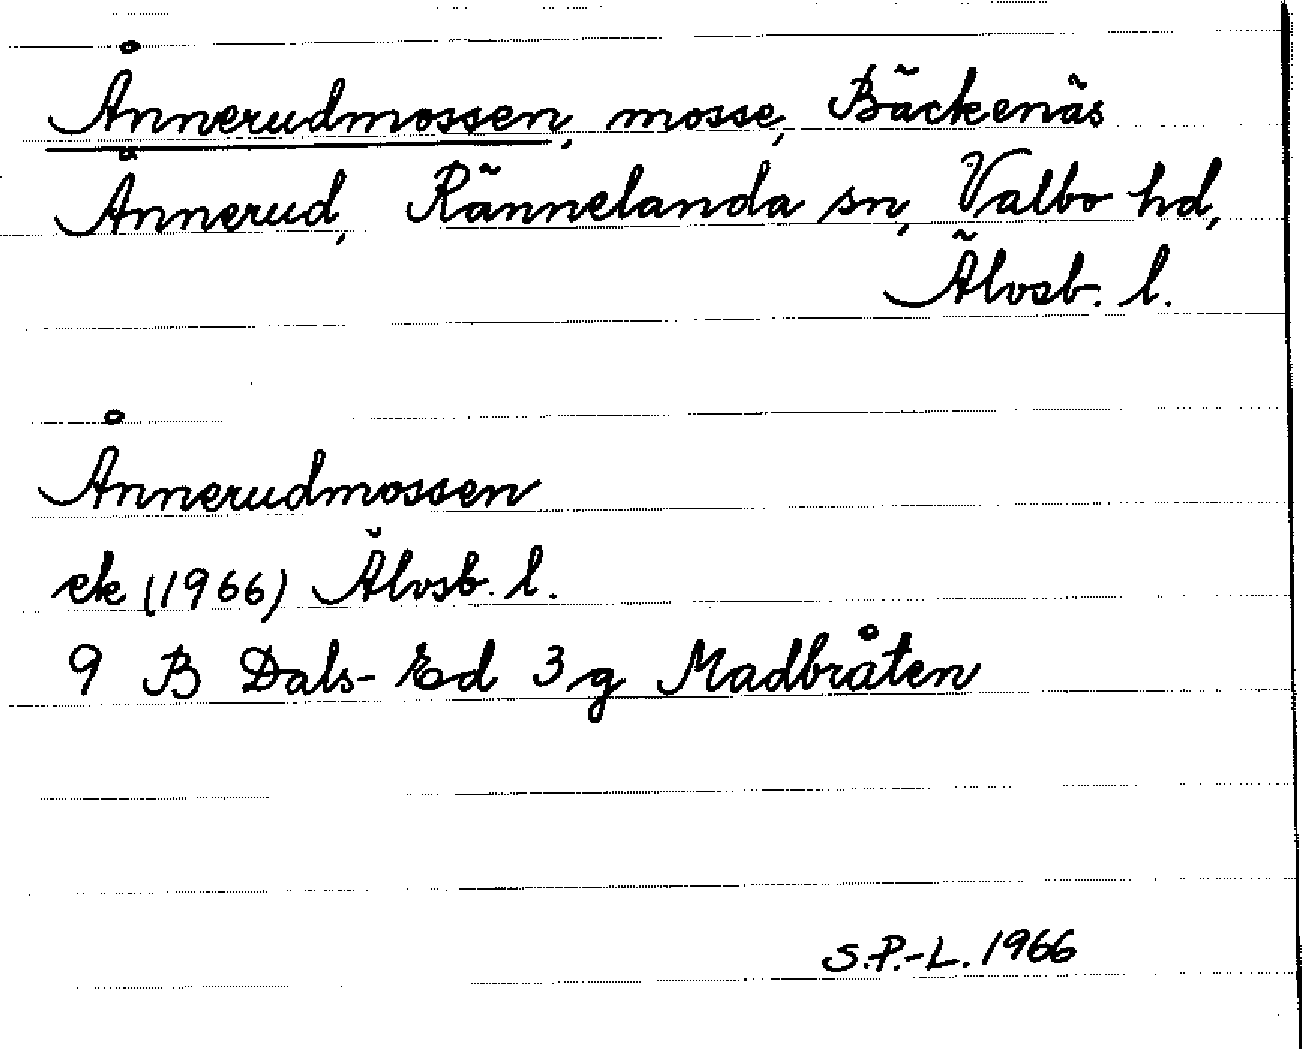 Ånnerudmossen, mosse, Bäckenäs
Ånnerud, Rännelanda sn, Valbo hd,
Älvsb. l.
Ånnerudmossen
ek (1966) Älvsb. l.
9 B Dals-Ed 3 g Madbråten
S.P.-L. 1966